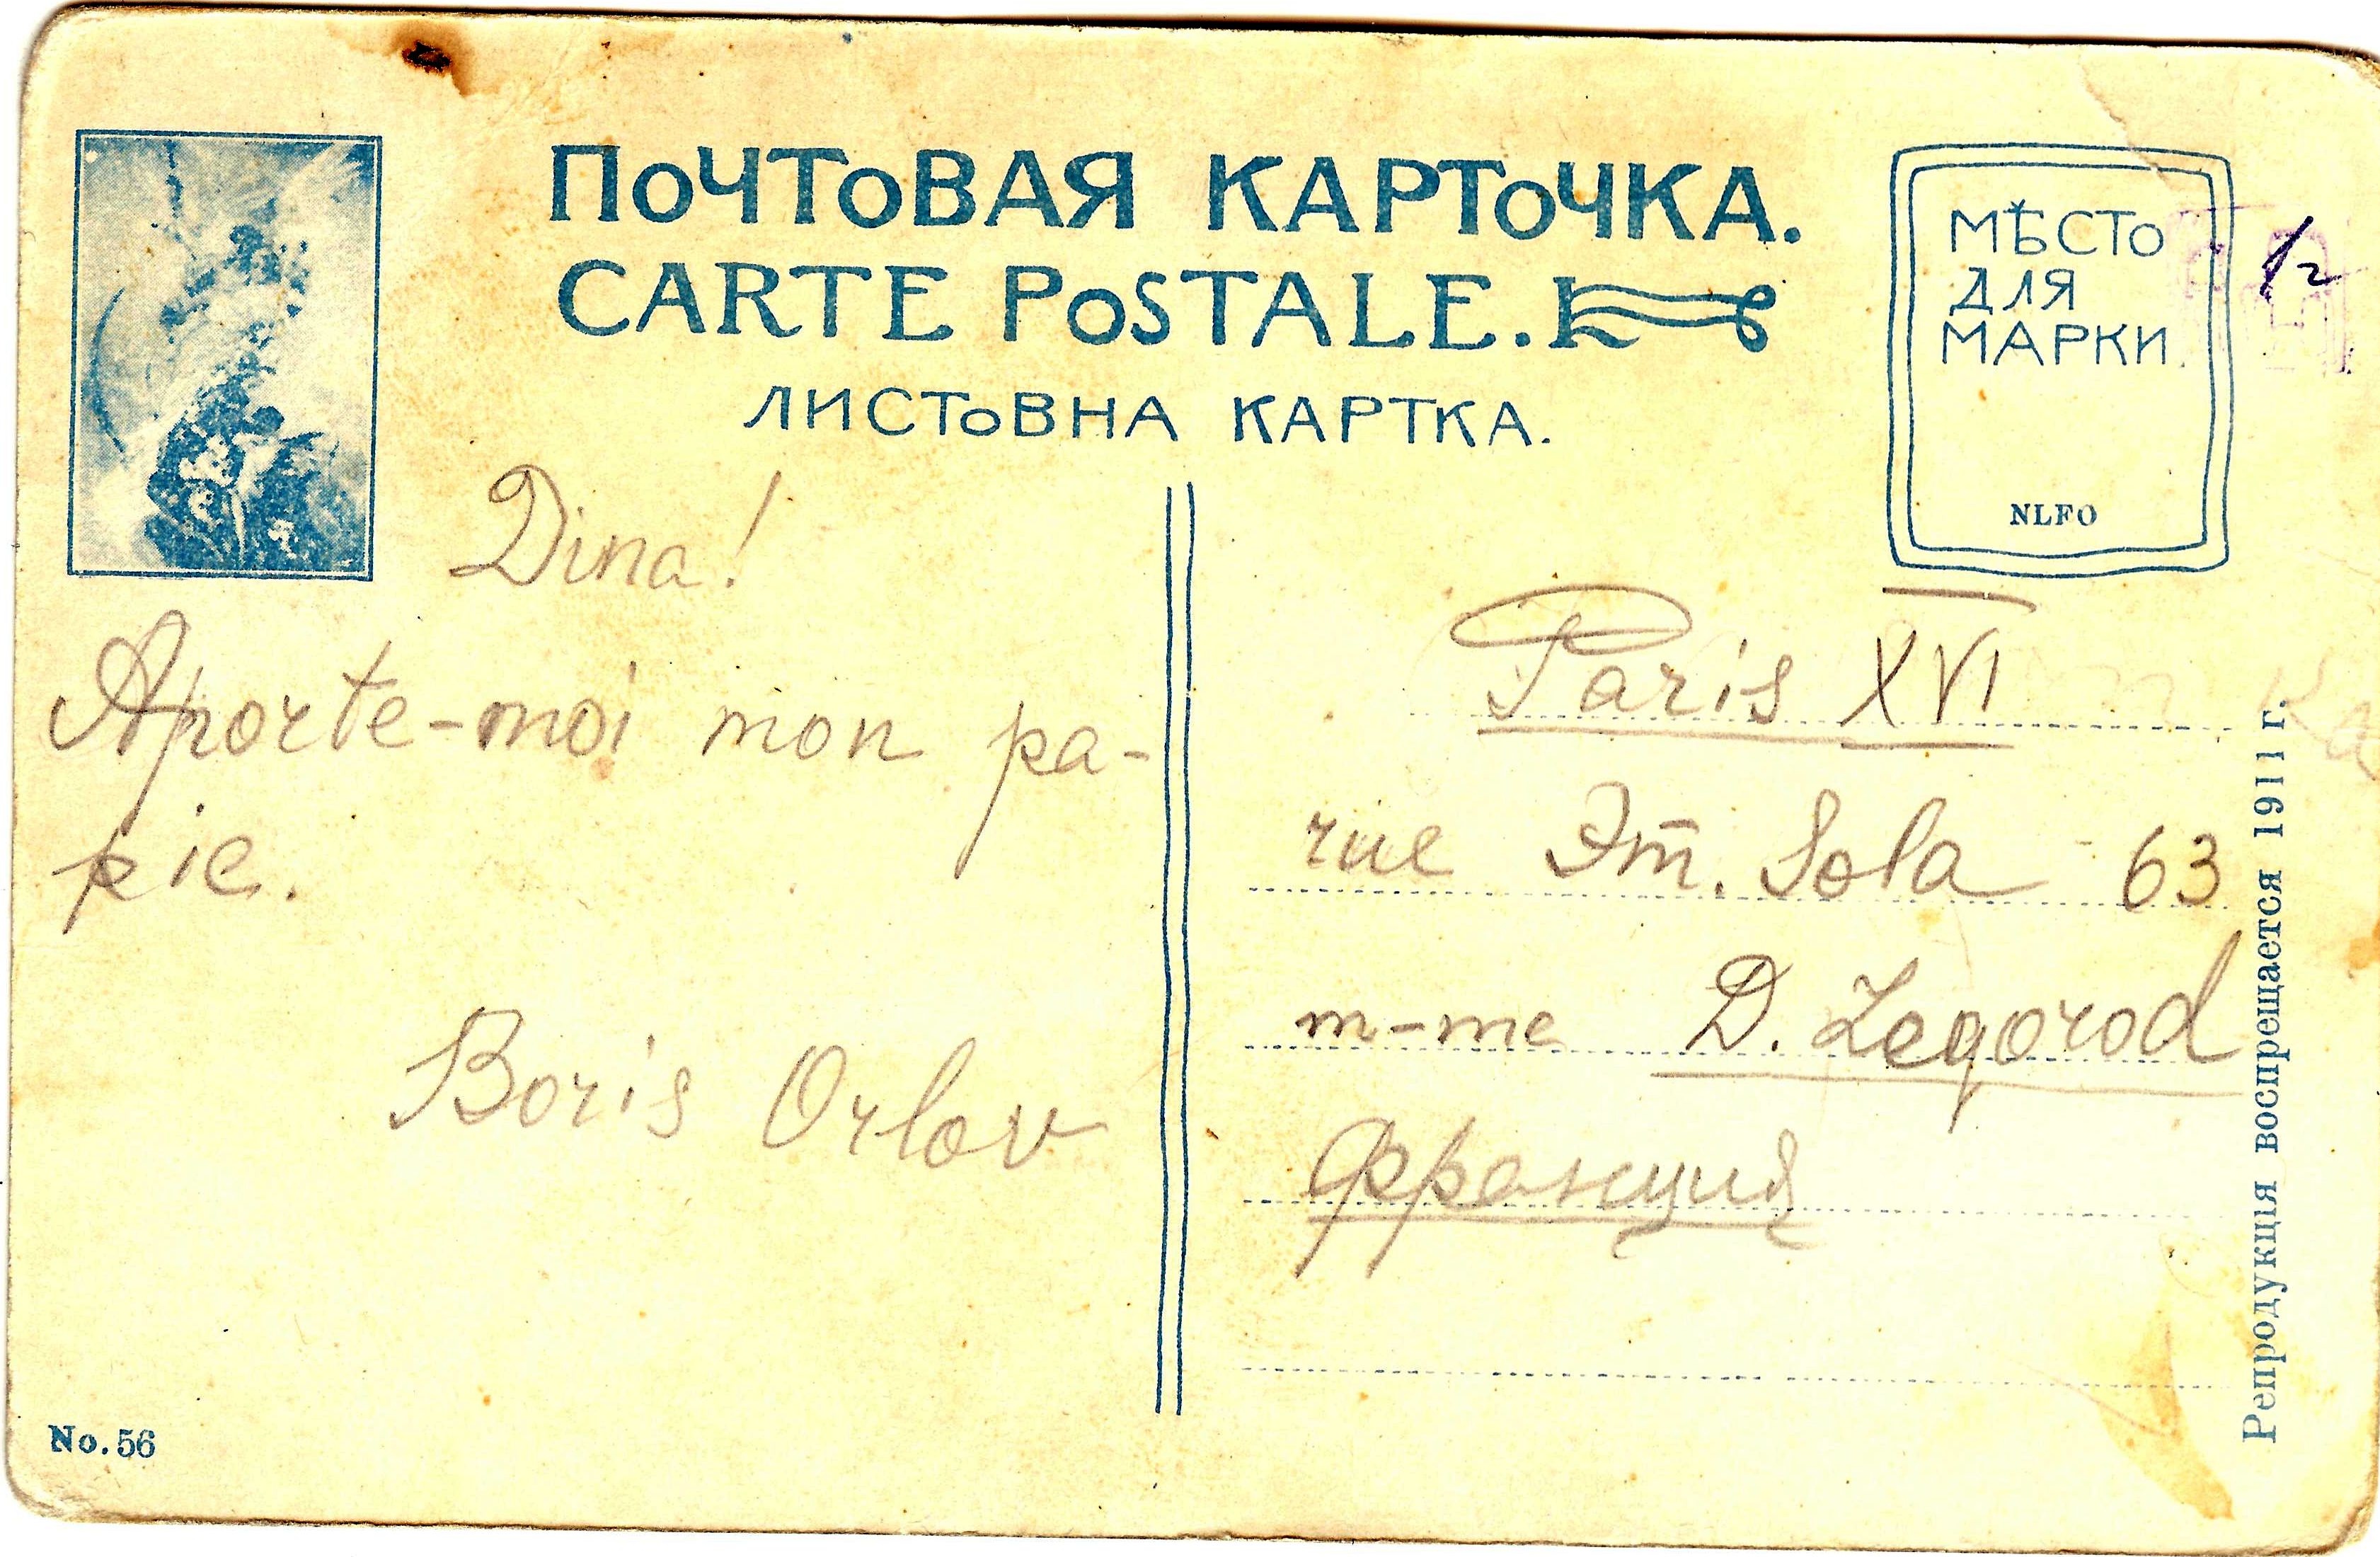 ПОЧТОВАЯ КАРТОЧКА.
CARTE POSTALE.
ЛИСТОВНА КАРТКА.
МѢСТО
ДЛЯ
МАРКИ.
NLFO
Dina!
Aporte-moi mon pa-
pie.
Boris Orlov
Paris XVI
rue Эm. Sola 63
m-me D. Zegorod
Франция
Репродукція воспрещается 1911 г.
No. 56